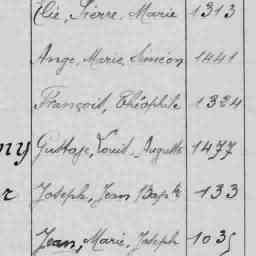 Elie, Pierre, Marie 1313
Ange, Marie, Siméon 1441
François, Théophile 1324
ny Gustave, Louis, Auguste 1477
r Joseph, Jean Bapte 133
Jean, Marie, Joseph 1035